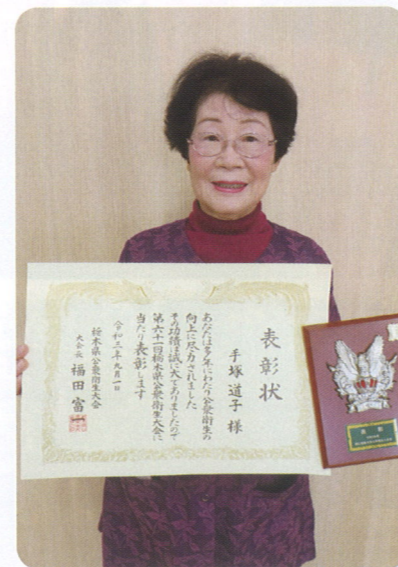 表彰状
手塚 道子 様
あなたは多年にわたり公衆衛生の
向上に尽力されました
その功績は誠に大でありましたので
第六十一回栃木県公衆衛生大会に
当たり表彰します
令和三年九月一日
栃木県公衆衛生大会
大会長 福田 富
表彰